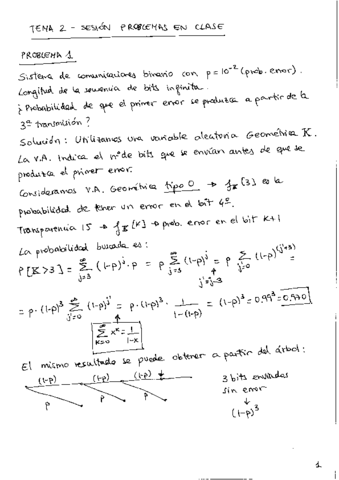 TEMA 2 - SESIÓN PROBLEMAS EN CLASE
PROBLEMA 1
Sistema de comunicaciones binario con p=10⁻² (prob. error).
Longitud de la secuencia de bits infinita.
¿Probabilidad de que el primer error se produzca a partir de la
3ª transmisión?
Solución: Utilizamos una variable aleatoria Geométrica K.
La v.A. indica el nº de bits que se envían antes de que se
produzca el primer error.
Consideramos V.A. Geométrica tipo 0 → f_K[3] es la
probabilidad de tener un error en el bit 4º.
Transparencia 15 → f_K[K] → prob. error en el bit K+1
La probabilidad buscada es:
P[K≥3] = ∑_{j=3}^{∞} (1-p)^j · p = p ∑_{j=3}^{∞} (1-p)^j = p ∑_{j'=0}^{∞} (1-p)^{(j'+3)} =
j'=j-3
= p·(1-p)³ ∑_{j'=0}^{∞} (1-p)^{j'} = p·(1-p)³ · 1/(1-(1-p)) = (1-p)³ = 0.99³ = 0.970
∑_{K=0}^{∞} x^K = 1/(1-x)
El mismo resultado se puede obtener a partir del árbol:
(1-p) (1-p) (1-p) 3 bits enviados
sin error
p p p (1-p)³
1